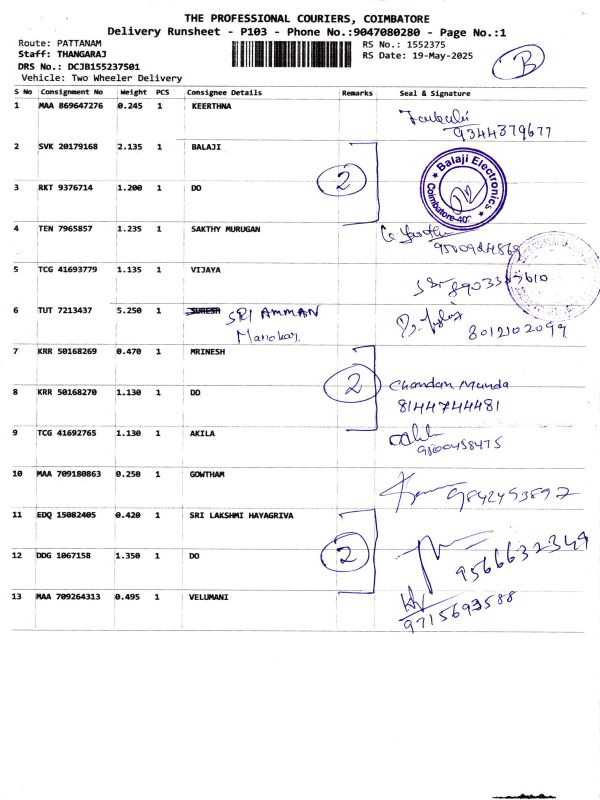 THE PROFESSIONAL COURIERS, COIMBATORE
Delivery Runsheet - P103 - Phone No.:9047080280 - Page No.:1
Route: PATTANAM RS No.: 1552375
Staff: THANGARAJ RS Date: 19-May-2025
DRS No.: DCJB155237501
Vehicle: Two Wheeler Delivery
B
S No Consignment No Weight PCS Consignee Details Remarks Seal & Signature
1 MAA 869647276 0.245 1 KEERTHNA
9344379677
2 SVK 20179168 2.135 1 BALAJI
2
Balaji Electronics
Coimbatore-
3 RKT 9376714 1.200 1 DO
4 TEN 7965857 1.235 1 SAKTHY MURUGAN
5 TCG 41693779 1.135 1 VIJAYA
6 TUT 7213437 5.250 1 SURESH SRI AMMAN
8012102099
7 KRR 50168269 0.470 1 MRINESH
2
Chandan Munda
8144744481
8 KRR 50168270 1.130 1 DO
9 TCG 41692765 1.130 1 AKILA
10 MAA 709180863 0.250 1 GOWTHAM
11 EDQ 15082405 0.420 1 SRI LAKSHMI HAYAGRIVA
2
9566632349
12 DDG 1067158 1.350 1 DO
13 MAA 709264313 0.495 1 VELUMANI
9715693588